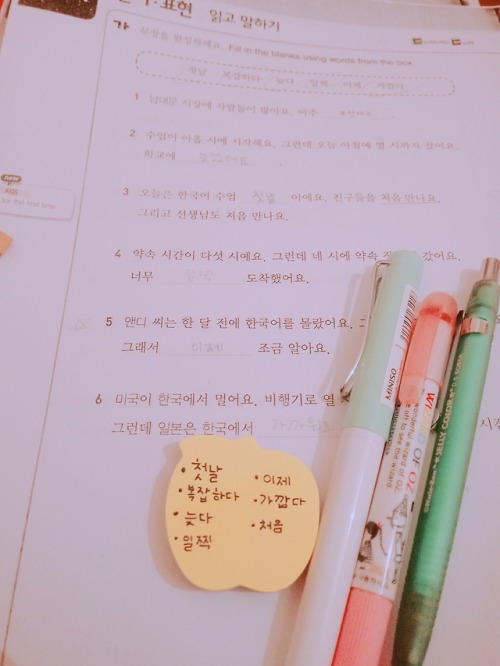 표현 읽고 말하기
가 문장을 완성하세요. Fill in the blanks using words from the box.
첫날 복잡하다 늦다 일찍 이제 가깝다
1 남대문 시장에 사람들이 많아요. 아주
2 수업이 아홉 시에 시작해요. 그런데 오늘 아침에 열 시까지 잤어요.
학교에 늦었어요.
3 오늘은 한국어 수업 첫날 이에요. 친구들을 처음 만나요.
그리고 선생님도 처음 만나요.
4 약속 시간이 다섯 시예요. 그런데 네 시에 약속 갔어요.
너무 일찍 도착했어요.
5 앤디 씨는 한 달 전에 한국어를 몰랐어요.
그래서 이제 조금 알아요.
6 미국이 한국에서 멀어요. 비행기로 열
그런데 일본은 한국에서 가까워요
new
처음
for the first time
• 첫날
• 복잡하다
• 늦다
• 일찍
• 이제
• 가깝다
• 처음
MINISO
JELLY COLOR